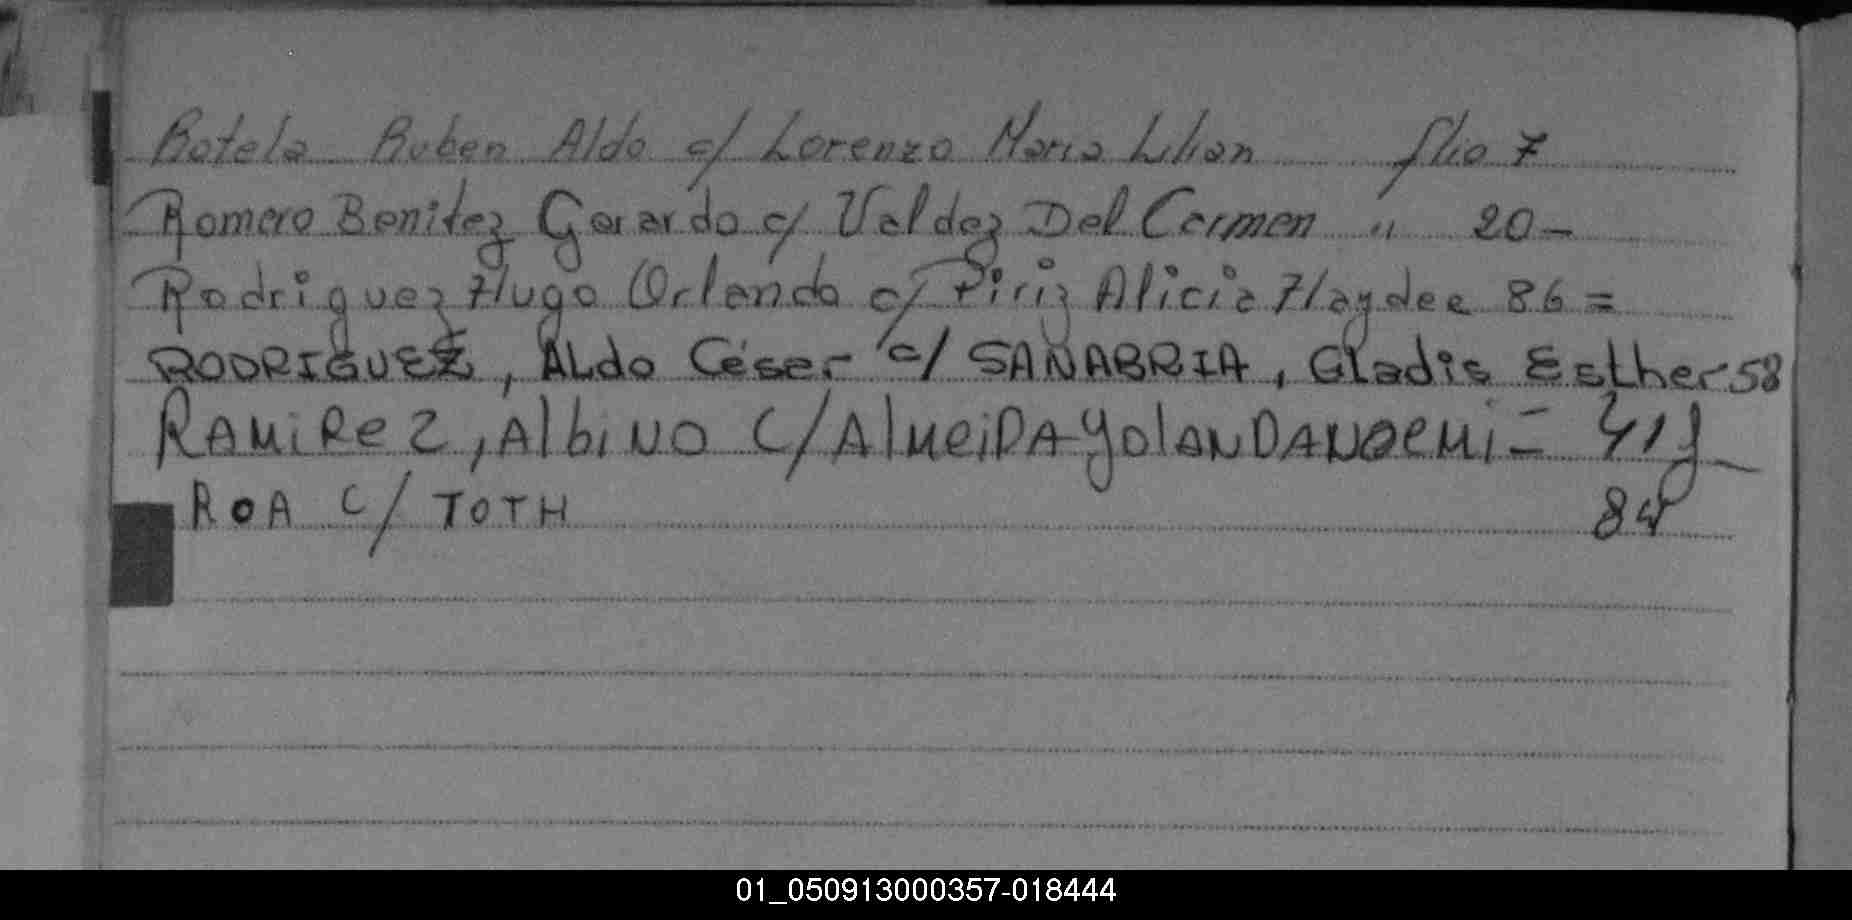 Botela Ruben Aldo c/ Lorenzo Maria Lilian flio 7
Romero Benitez Gerardo c/ Valdez Del Carmen " 20-
Rodriguez Hugo Orlando c/ Piriz Alicia Haydee 86=
RODRIGUEZ, ALdo César c/ SANABRIA, Gladis Esther 58
RAMIRez, Albino C/ AlmeiDA YolANDA NOEMi = 41
ROA C/ TOTH 84
01_050913000357-018444